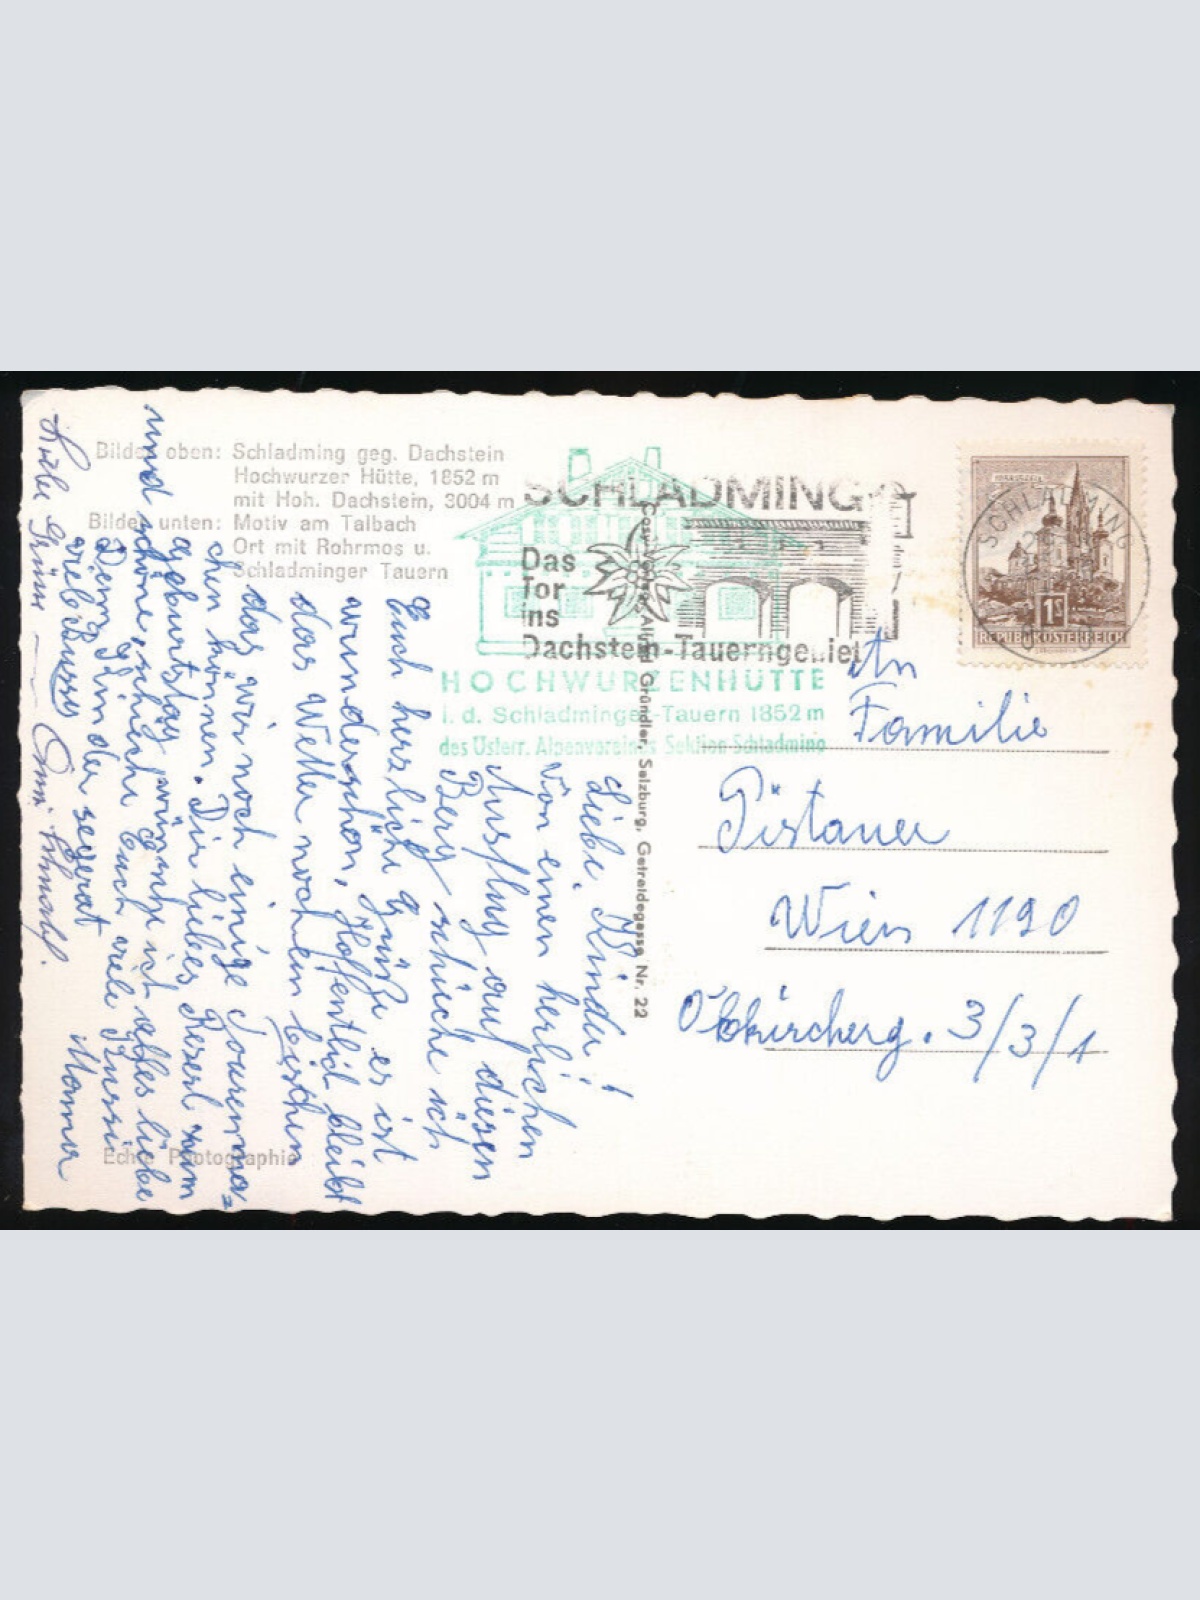 Bilder oben: Schladming geg. Dachstein
Hochwurzer Hütte, 1852 m
mit Hoh. Dachstein, 3004 m
Bilder unten: Motiv am Talbach
Ort mit Rohrmos u.
Schladminger Tauern
SCHLADMING
Das
Tor
ins
Dachstein-Tauerngebiet
HOCHWURZENHÜTTE
i. d. Schladminger-Tauern 1852 m
des Österr. Alpenvereines Sektion Schladming
Gründler, Salzburg, Getreidegasse Nr. 22
SCHLADMING
1S
REPUBLIK ÖSTERREICH
An
Familie
Pistauer
Wien 1190
Obkircherg. 3/3/1
Liebe Kinder!
Von einen herlichen
Ausflug auf diesen
Berg schicke ich
Euch herzliche Grüße es ist
wunderschön, Hoffentlich bleibt
das Wetter noch ein bischen
das wir noch einige Touren ma=
chen können. Dir liebes Reserl zum
Geburtstag wünsche ich alles liebe
und schöne, schicke Euch viele Bussi
Mama
Liebe Grüsse
Echte Photographie